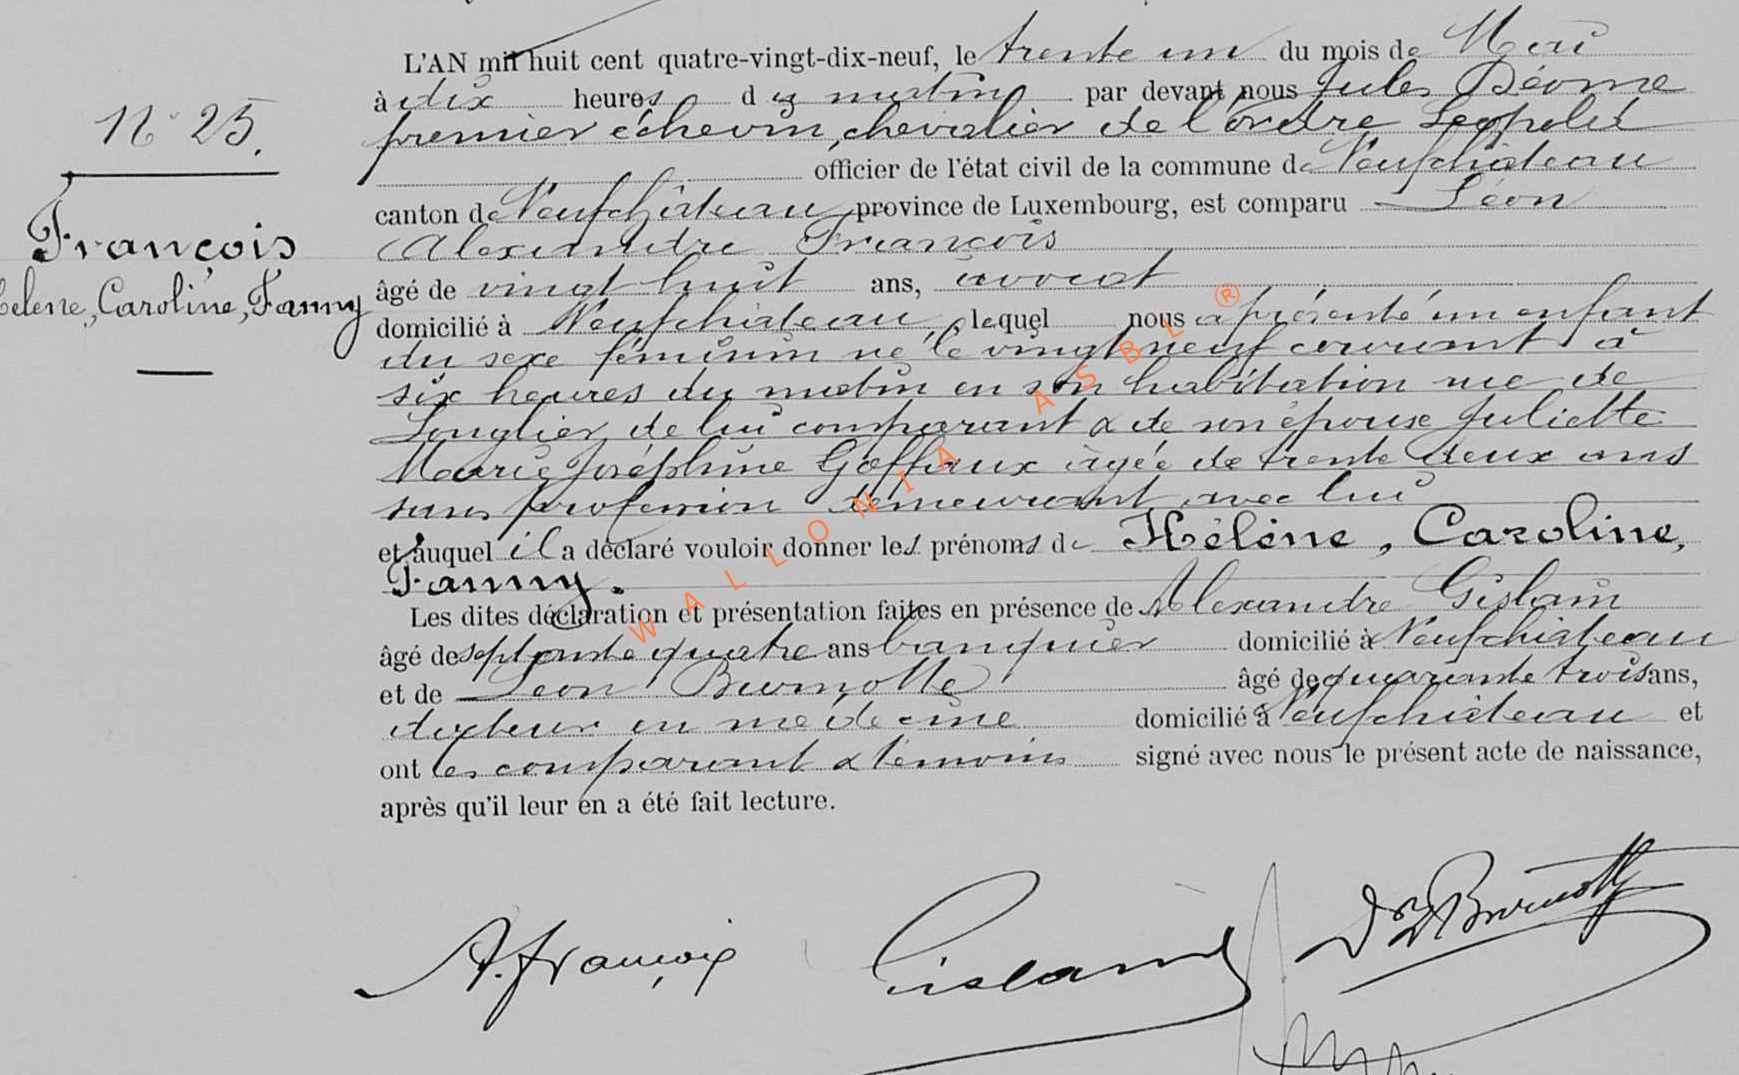 L'AN mil huit cent quatre-vingt-dix-neuf, le trente un du mois de Mai
à dix heures du matin par devant nous Jules Déome
premier échevin, chevalier de l'ordre Léopold
officier de l'état civil de la commune de Neufchâteau
canton de Neufchâteau province de Luxembourg, est comparu Léon
Alexandre François
âgé de vingt huit ans, avocat
domicilié à Neufchâteau, lequel nous a présenté un enfant
du sexe féminin né le vingt neuf courant à
six heures du matin en son habitation rue de
Longlier, de lui comparant & de son épouse Juliette
Marie Joséphine Goffaux âgée de trente deux ans
sans profession demeurant avec lui
et auquel il a déclaré vouloir donner les prénoms de Hélène, Caroline,
Fanny.
Les dites déclaration et présentation faites en présence de Alexandre Gislain
âgé de septante quatre ans banquier domicilié à Neufchâteau
et de Léon Burnotte âgé de quarante trois ans,
docteur en médecine domicilié à Neufchâteau et
ont les comparant & témoins signé avec nous le présent acte de naissance,
après qu'il leur en a été fait lecture.
N° 25.
François
Hélène, Caroline, Fanny
A. François Gislain Dr L Burnotte
WALLONIA ASBL ®